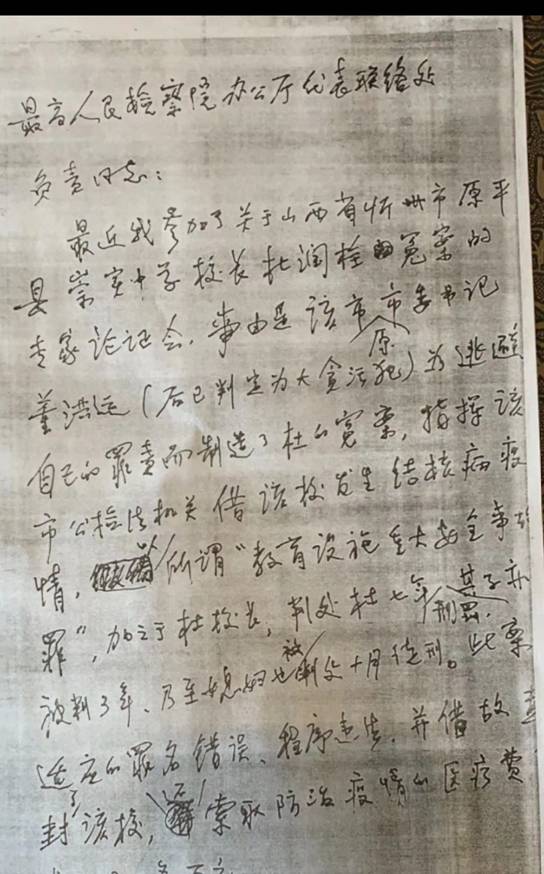 最高人民检察院办公厅代表联络处
负责同志：
最近我参加了关于山西省忻州市原平
县崇实中学校长杜润栓冤案的
专家论证会，事由是该市原市委书记
董洪运（后已判定为大贪污犯）为逃避
自己的罪责而制造了杜的冤案，指挥该
市公检法机关借该校发生结核病疫
情，以所谓“教育设施重大安全事故
罪”，加之于杜校长，判处杜七年刑罚，其子亦
被判3年、乃至媳妇也被判处十月徒刑。此案
适应的罪名错误、程序违法，并借故查
封了该校，索取防治疫情的医疗费